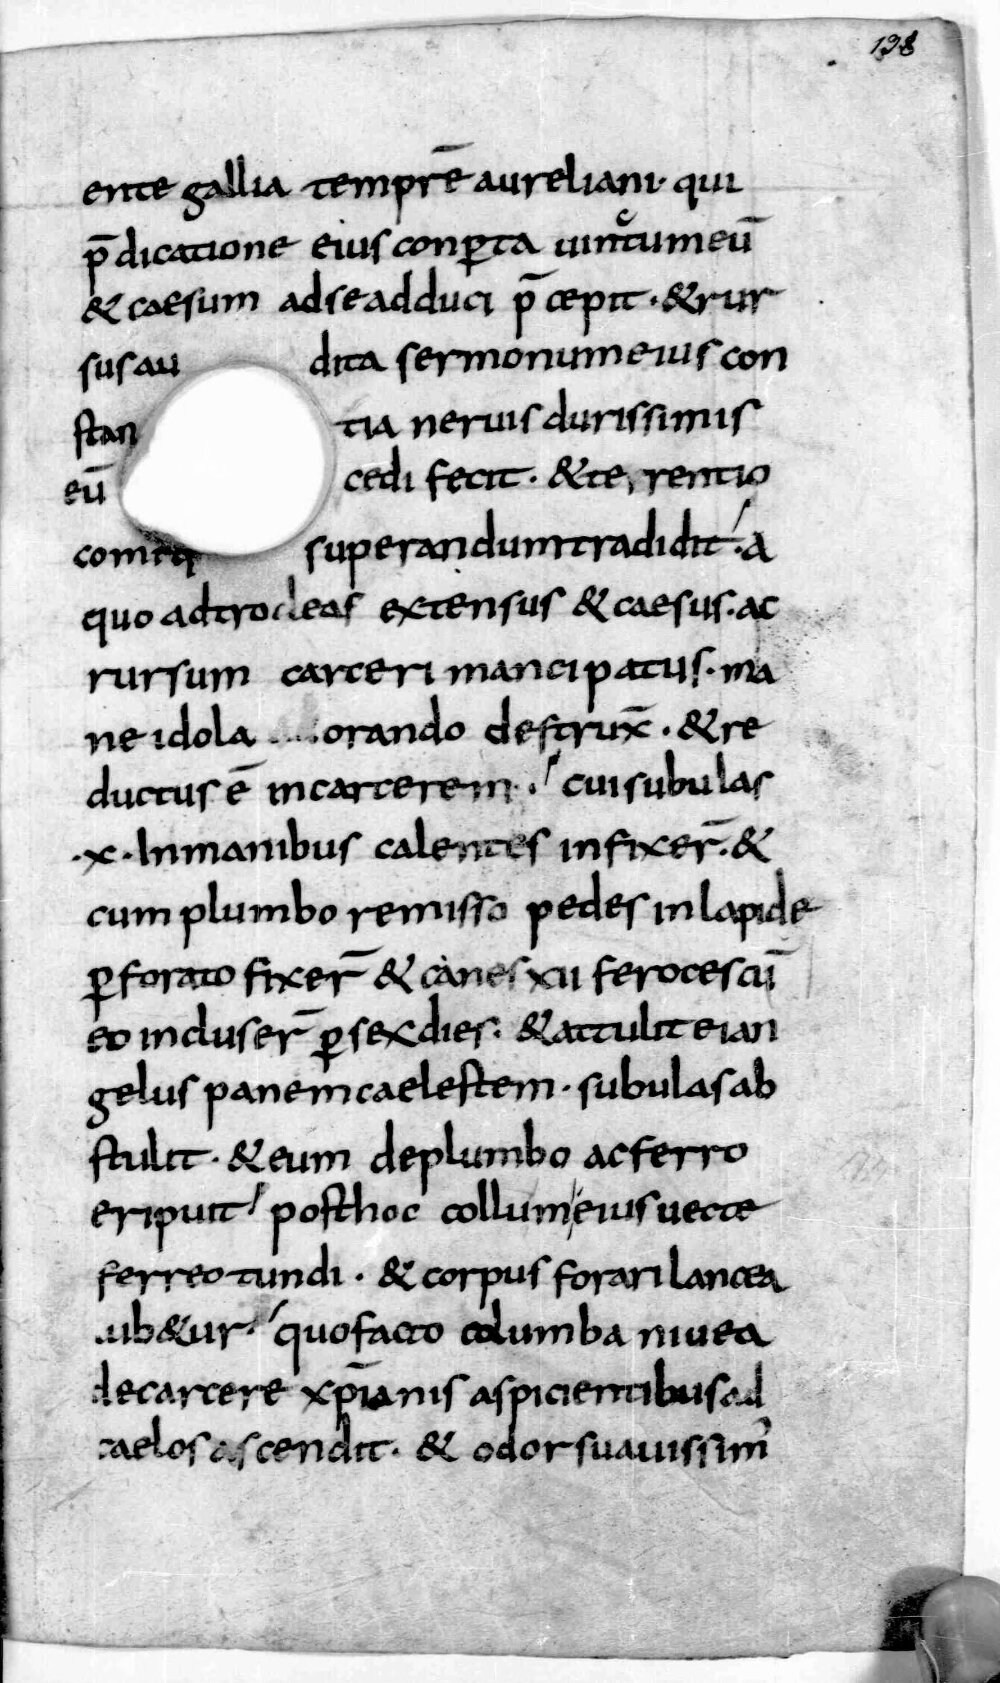 198
ente gallia temprē aureliani · qui
p̄dicatione eius conꝑta uinctum eū
& caesum ad se adduci p̄cepit · & rur
sus au dita sermonum eius con
stan tia neruis durissimis
eū cedi fecit · & terentio
comiti superandum tradidit · a
quo ad trocleas extensus & caesus · ac
rursum carceri mancipatus · ma
ne idola orando destrux̄ · & re
ductus ē in carcerem · cui subulas
· x · In manibus calentes infixer̄ · &
cum plumbo remisso pedes in lapide
ꝑforato fixer̄ & canes xii feroces cū
eo incluser̄ ꝑ sex dies · & attulit ei an
gelus panem caelestem · subulas ab
stulit · & eum de plumbo ac ferro
eripuit post hoc collum eius uecte
ferreo tundi · & corpus forari lancea
iub&ur · quo facto columba niuea
de carcere xp̄ianis aspicientibus ad
caelos ascendit · & odor suauissim